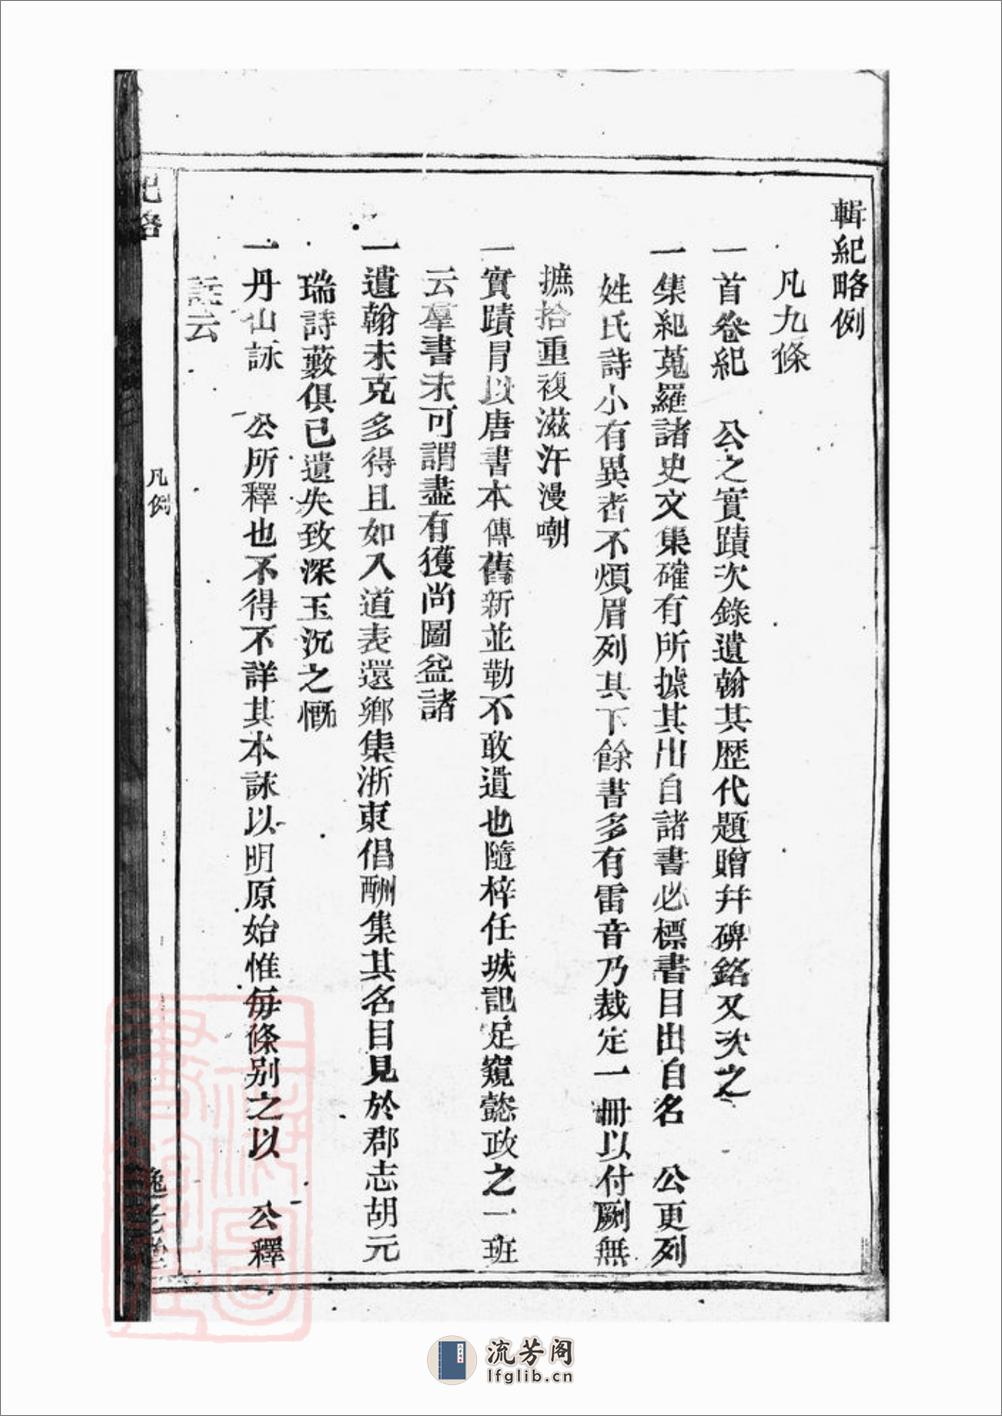 輯紀略例
凡九條
一首卷紀　公之實蹟次錄遺翰其歷代題贈并碑銘又次之
一集紀蒐羅諸史文集確有所據其出自諸書必標書目出自名　公更列
姓氏詩小有異者不煩眉列其下餘書多有雷音乃裁定一冊以付劂無
摭拾重複滋汗漫嘲
一實蹟冐以唐書本傳舊新並勒不敢遺也隨梓任城記足窺懿政之一班
云羣書未可謂盡有獲尚圖益諸
一遺翰未克多得且如入道表還鄉集浙東倡酬集其名目見於郡志胡元
瑞詩藪俱已遺失致深玉沉之慨
一丹山詠　公所釋也不得不詳其本詠以明原始惟每條別之以　公釋
註云
紀略
凡例
逸老堂
流芳阁
lfglib.cn